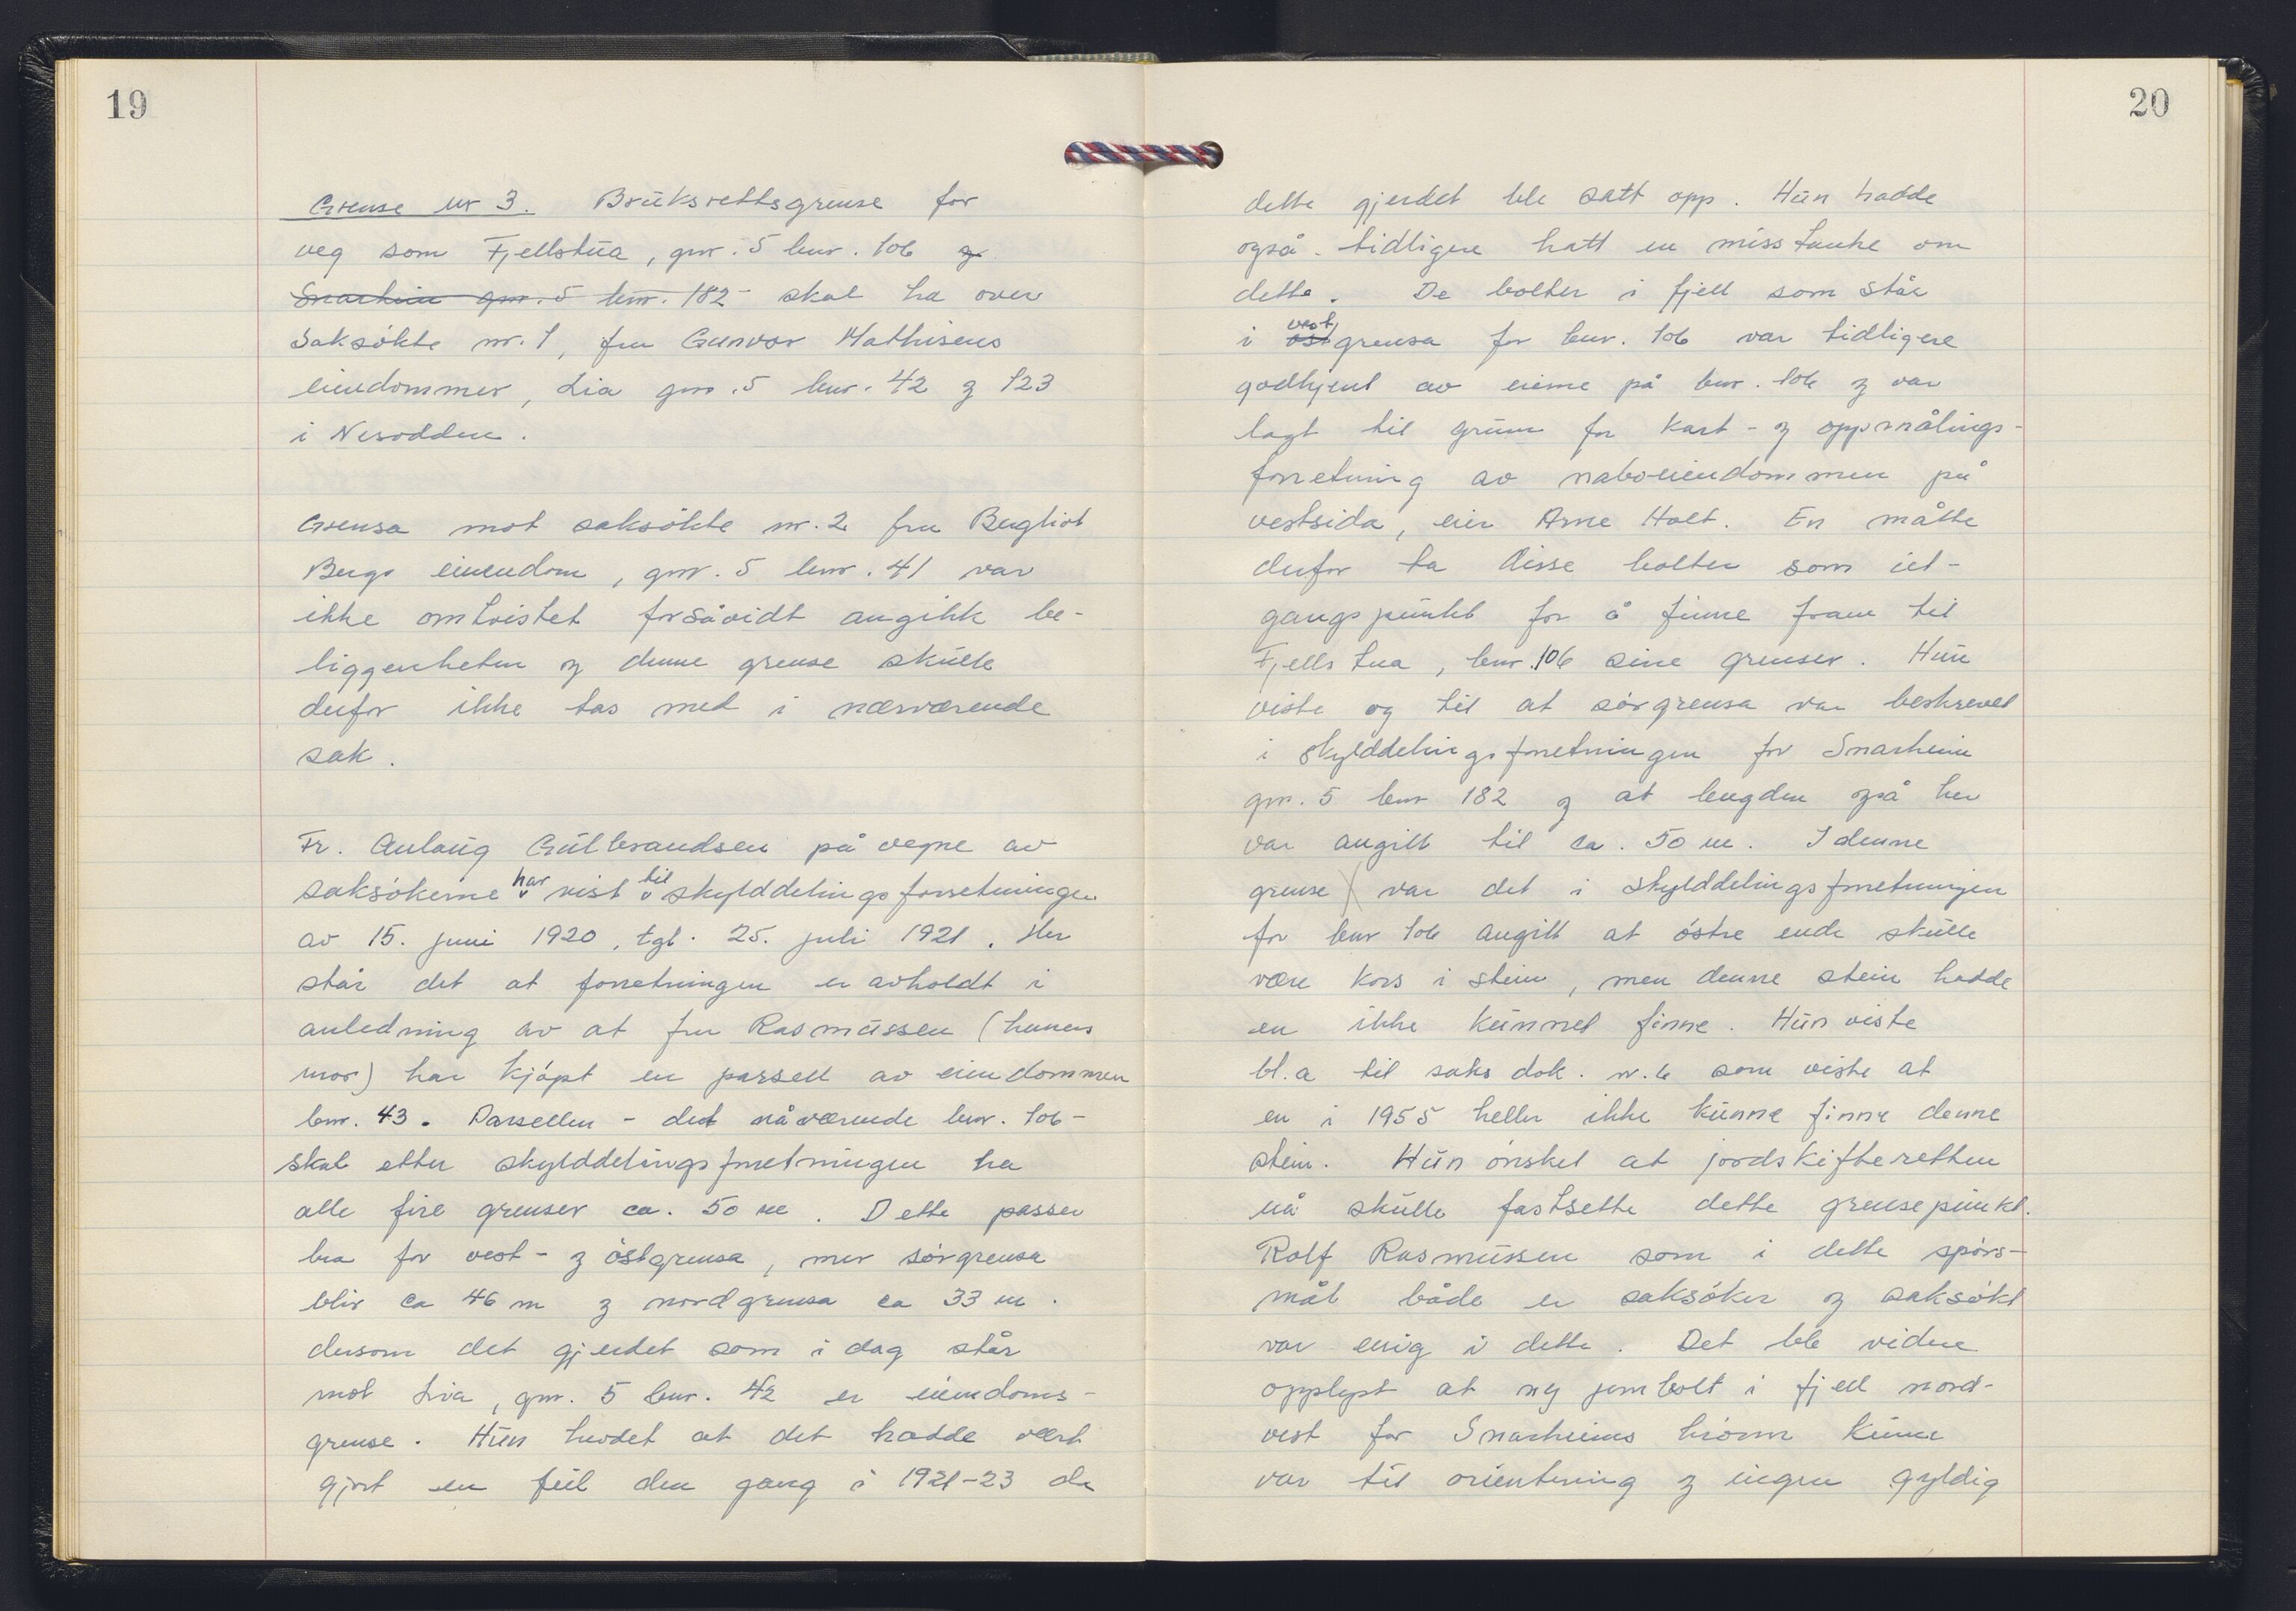 19
Grense nr 3. Bruksrettsgrense for
veg som Fjellstua, gnr. 5 bnr. 106 og
Snarheim gnr. 5 bnr. 182 skal ha over
saksøkte nr. 1, fru Gunvor Mathisens
eiendommer, Lia gnr. 5 bnr. 42 og 123
i Nesodden.
Grensa mot saksøkte nr. 2 fru Bergliot
Bergs eiendom, gnr. 5 bnr. 41 var
ikke omtvistet forsåvidt angikk be-
liggenheten og denne grense skulle
derfor ikke tas med i nærværende
sak.
Fr. Aulaug Gulbrandsen på vegne av
saksøkerne har vist til skylddelingsforretningen
av 15. juni 1920, tgl. 25. juli 1921. Her
står det at forretningen er avholdt i
anledning av at fru Rasmussen (hennes
mor) har kjøpt en parsell av eiendommen
bnr. 43. Parsellen - det nåværende bnr. 106 -
skal etter skylddelingsforretningen ha
alle fire grenser ca. 50 m. Dette passer
bra for vest- og østgrensa, mer sørgrensa
blir ca 46 m og nordgrensa ca 33 m.
dersom det gjerdet som i dag står
mot Lia, gnr. 5 bnr. 42 er eiendoms-
grense. Hun hevdet at det hadde vært
gjort en feil den gang i 1921-23 da
20
dette gjerdet ble satt opp. Hun hadde
også tidligere hatt en misstanke om
dette. De bolter i fjell som står
i øst vestgrensa for bnr. 106 var tidligere
godkjent av eierne på bnr. 106 og var
lagt til grunn for kart- og oppmålings-
forretning av naboeiendommen på
vestsida, eier Arne Holt. En måtte
derfor ta disse bolter som ut-
gangspunkt for å finne fram til
Fjellstua, bnr. 106 sine grenser. Hun
viste og til at sørgrensa var beskrevet
i skylddelingsforretningen for Snarheim
gnr. 5 bnr 182 og at lengden også her
var angitt til ca. 50 m. I denne
grense var det i skylddelingsforretningen
for bnr 106 angitt at østre ende skulle
være kors i stein, men denne stein hadde
en ikke kunnet finne. Hun viste
bl.a til saks dok. nr. 6 som viste at
en i 1955 heller ikke kunne finne denne
stein. Hun ønsket at jordskifteretten
nå skulle fastsette dette grensepunkt.
Rolf Rasmussen som i dette spørs-
mål både er saksøker og saksøkt
var enig i dette. Det ble videre
opplyst at ny jernbolt i fjell nord-
vest for Snarheims hjørne kunne
var til orientering og ingen gyldig